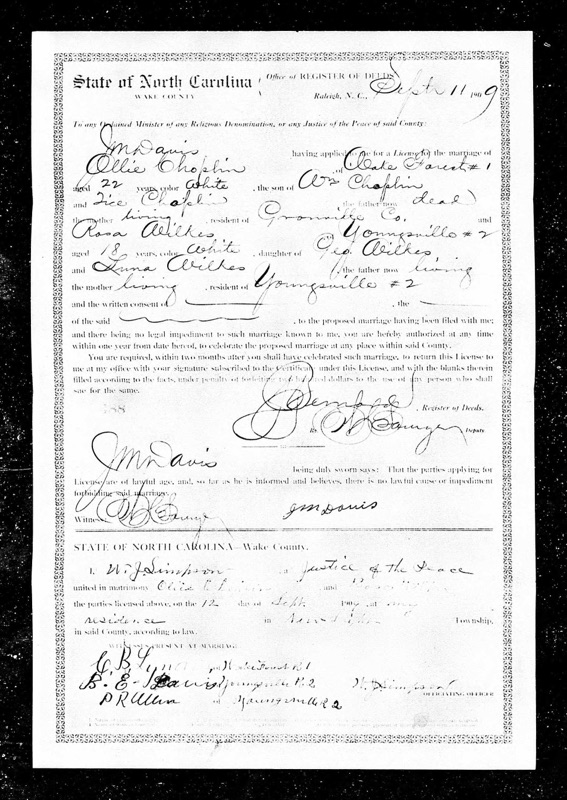 State of North Carolina
WAKE COUNTY
Office of REGISTER OF DEEDS
Raleigh, N. C., Septr 11 1909
To any Ordained Minister of any Religious Denomination, or any Justice of the Peace of said County:
J M Davis having applied to me for a License for the marriage of
Ollie Choplin of Wake Forest #1
aged 22 years, color White, the son of Wm Choplin
and Choplin the father now dead
the mother living, resident of Granville Co. and
Rosa Wilkes of Youngsville #2
aged 18 years, color White, daughter of Geo Wilkes
and Wilkes, the father now living
the mother living, resident of Youngsville #2
and the written consent of , the
of the said , to the proposed marriage having been filed with me;
and there being no legal impediment to such marriage known to me, you are hereby authorized at any time
within one year from date hereof, to celebrate the proposed marriage at any place within said County.
You are required, within two months after you shall have celebrated such marriage, to return this License to
me at my office with your signature subscribed to the Certificate under this License, and with the blanks therein
filled according to the facts, under penalty of forfeiting two hundred dollars to the use of any person who shall
sue for the same.
J Bernard, Register of Deeds.
By Deputy
J M Davis being duly sworn says: That the parties applying for
License are of lawful age, and, so far as he is informed and believes, there is no lawful cause or impediment
forbidding said marriage.
Witness: J M Davis
STATE OF NORTH CAROLINA—Wake County.
I, W. J. Simpson a Justice of the Peace
united in matrimony Ollie and
the parties licensed above, on the 12 day of Sept 1909, at my
residence in Township,
in said County, according to law.
WITNESSES PRESENT AT MARRIAGE
C. B. of Wake Forest R1
B. E. Davis of Youngsville R.2 W. J. Simpson
OFFICIATING OFFICER
P R Allen of Youngsville R2